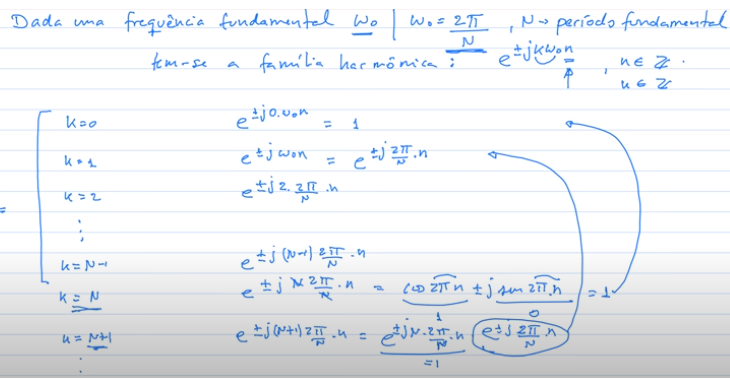 Dada uma frequência fundamental ω₀ | ω₀ = 2π/N , N → período fundamental
tem-se a família harmônica : e^(±jkω₀n) , n ∈ ℤ .
k ∈ ℤ
k=0 e^(±j0.ω₀n) = 1
k=1 e^(±jω₀n) = e^(±j 2π/N .n)
k=2 e^(±j2. 2π/N .n)
⋮
k=N-1 e^(±j(N-1) 2π/N .n)
k=N e^(±jN 2π/N .n) = cos 2πn ± j sen 2π.n = 1
1 0
k=N+1 e^(±j(N+1) 2π/N .n) = e^(±jN. 2π/N .n) . e^(±j 2π/N .n)
=1
⋮
=